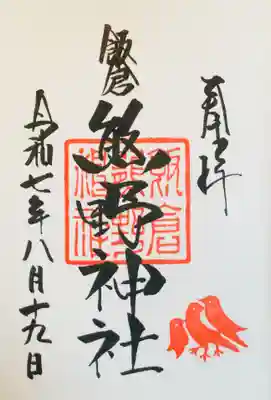 奉拝
飯倉
熊野神社
飯倉
熊野
神社
令和七年八月十九日